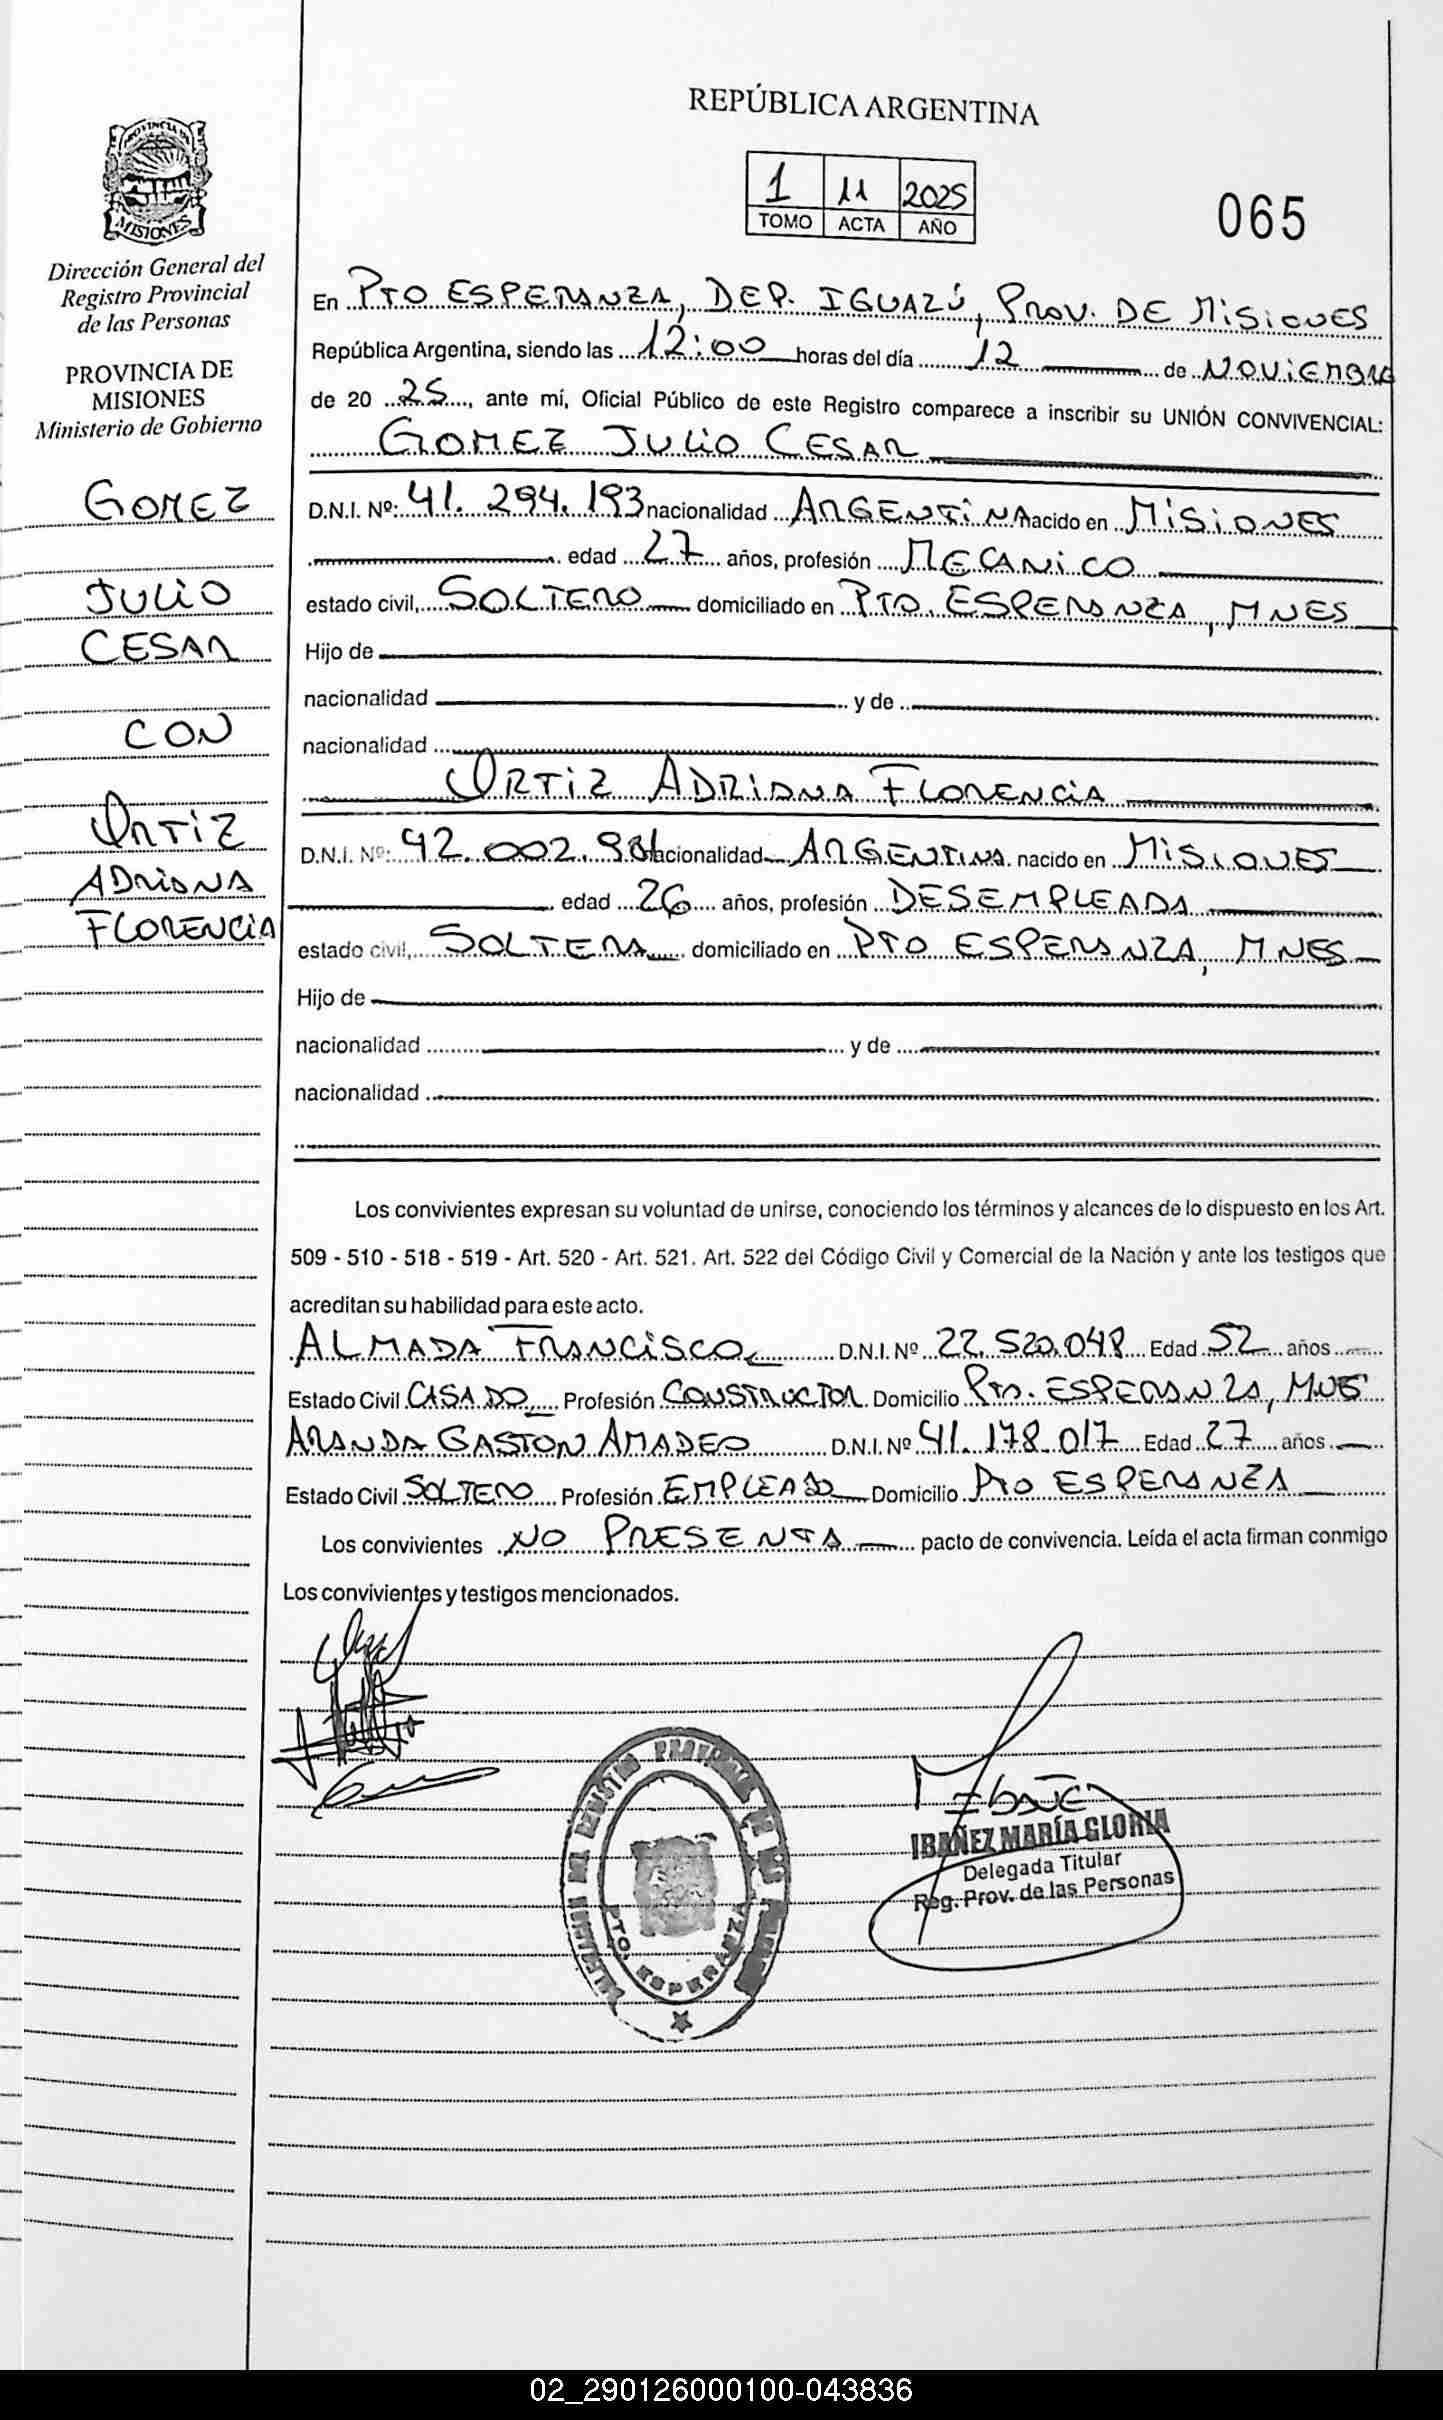 REPÚBLICA ARGENTINA
1 11 2025
TOMO ACTA AÑO
065
PROVINCIA DE
MISIONES
Dirección General del
Registro Provincial
de las Personas
PROVINCIA DE
MISIONES
Ministerio de Gobierno
GOMEZ
JULIO
CESAR
CON
ORTIZ
ADRIANA
FLORENCIA
En PTO ESPERANZA, DEP. IGUAZÚ, PROV. DE MISIONES
República Argentina, siendo las 12:00 horas del día 12 de NOVIEMBRE
de 20 25, ante mí, Oficial Público de este Registro comparece a inscribir su UNIÓN CONVIVENCIAL:
GOMEZ JULIO CESAR
D.N.I. Nº: 41.294.193 nacionalidad ARGENTINA nacido en MISIONES
edad 27 años, profesión MECANICO
estado civil, SOLTERO domiciliado en PTO. ESPERANZA, MNES
Hijo de
nacionalidad y de
nacionalidad
ORTIZ ADRIANA FLORENCIA
D.N.I. Nº: 42.002. nacionalidad ARGENTINA nacido en MISIONES
edad 26 años, profesión DESEMPLEADA
estado civil, SOLTERA domiciliado en PTO ESPERANZA, MNES
Hijo de
nacionalidad y de
nacionalidad
Los convivientes expresan su voluntad de unirse, conociendo los términos y alcances de lo dispuesto en los Art.
509 - 510 - 518 - 519 - Art. 520 - Art. 521. Art. 522 del Código Civil y Comercial de la Nación y ante los testigos que
acreditan su habilidad para este acto.
ALMADA FRANCISCO D.N.I. Nº 22.520.048 Edad 52 años
Estado Civil CASADO Profesión CONSTRUCTOR Domicilio PTO. ESPERANZA, MNES
ARANDA GASTON AMADEO D.N.I. Nº 41.178.017 Edad 27 años
Estado Civil SOLTERO Profesión EMPLEADO Domicilio PTO ESPERANZA
Los convivientes NO PRESENTA pacto de convivencia. Leída el acta firman conmigo
Los convivientes y testigos mencionados.
REGISTRO PROVINCIAL
PTO. ESPERANZA
IBAÑEZ MARÍA GLORIA
Delegada Titular
Reg. Prov. de las Personas
02_290126000100-043836